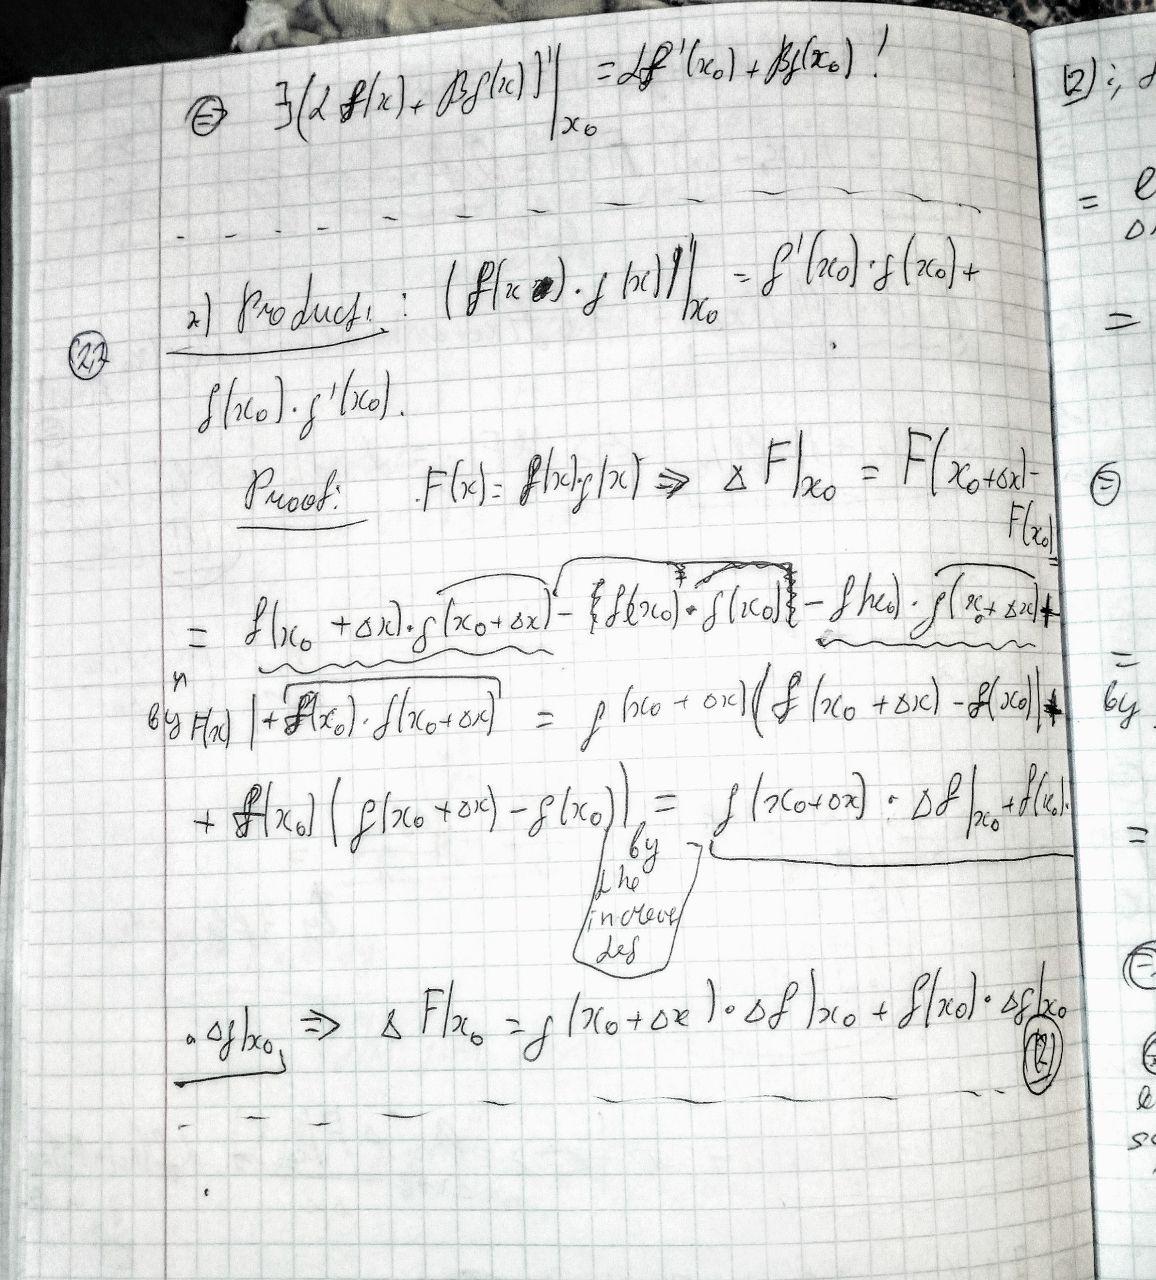 ⊜ ∃(αf(x) + βg(x))'|x₀ = αf'(x₀) + βg(x₀)!
2) Product: (f(x)·g(x))'|x₀ = f'(x₀)·g(x₀) +
22
f(x₀)·g'(x₀).
Proof: F(x) = f(x)·g(x) ⇒ ΔF|x₀ = F(x₀+Δx) -
F(x₀)
= f(x₀+Δx)·g(x₀+Δx) - {f(x₀)·g(x₀)} - f(x₀)·g(x₀+Δx) +
by F(x) | + f(x₀)·g(x₀+Δx) = g(x₀+Δx)(f(x₀+Δx) - f(x₀)) +
+ f(x₀)(g(x₀+Δx) - g(x₀)) = g(x₀+Δx)·Δf|x₀ + f(x₀)·
by
the
def
·Δg|x₀, ⇒ ΔF|x₀ = g(x₀+Δx)·Δf|x₀ + f(x₀)·Δg|x₀
(2)
(2):
=
=
⊜
=
by
=